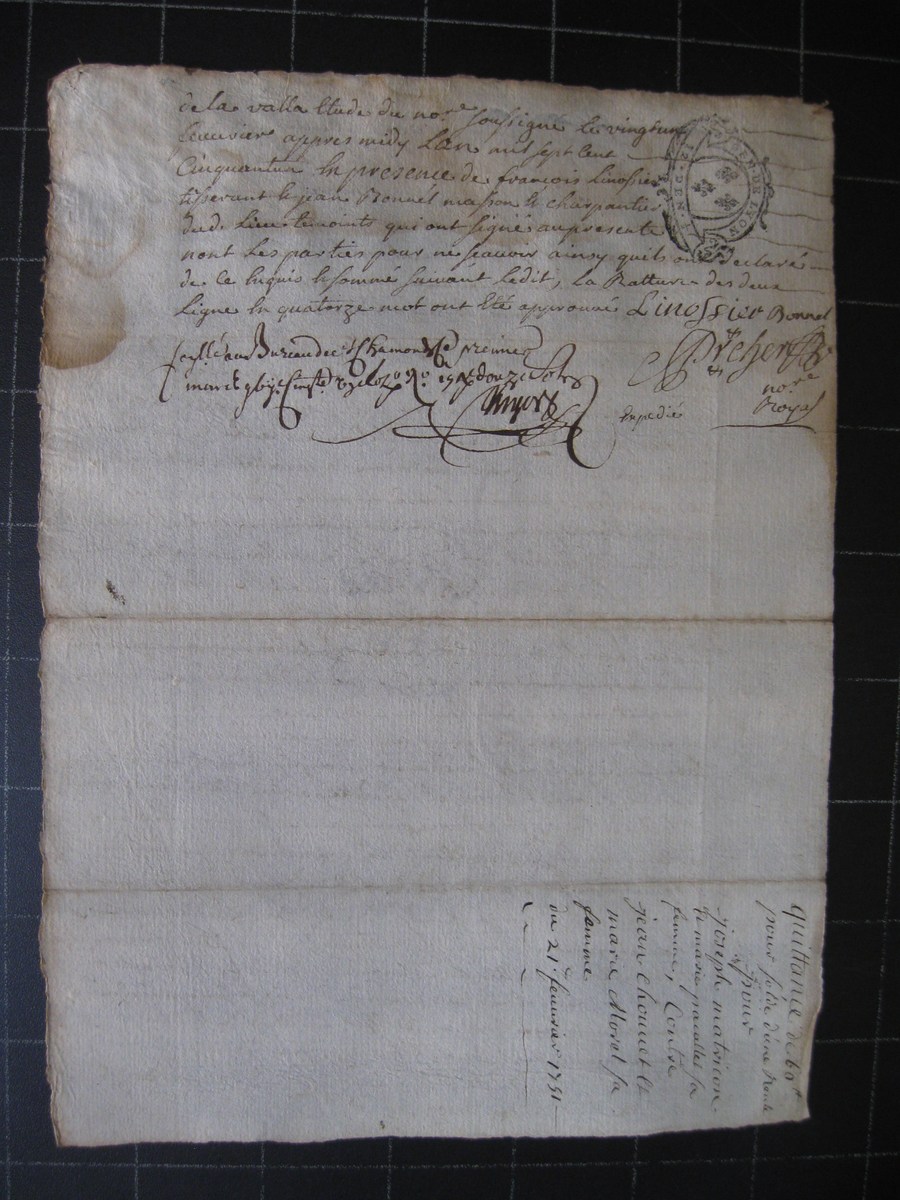 de la valla Etude du nore soussigné le vingtun
feuvrier appres midy L'an mil sept cent
Cinquanteun En presence de francois Linossier
tisserant et jean Bonnel masson et charpantier
dud. Lieu temoints qui ont signé au presente
nont Les parties pour ne scavoir ainsy quils ont declaré
de ce Enquis et sommé suivant Ledit, La Ratture des deux
Ligne En quatorze mot ont Eté approuvé Linossier Bonnel
scellé au Bureau de St Chamond Ce premier
mars douze sols
nore
Royal
Expedié
quittance de 60#
pour solde d'une vente
Pour
joseph matricon
et marie paralles sa
femme, Contre
jean Chomet et
marie Morel sa
femme
du 21e feuvrier 1751